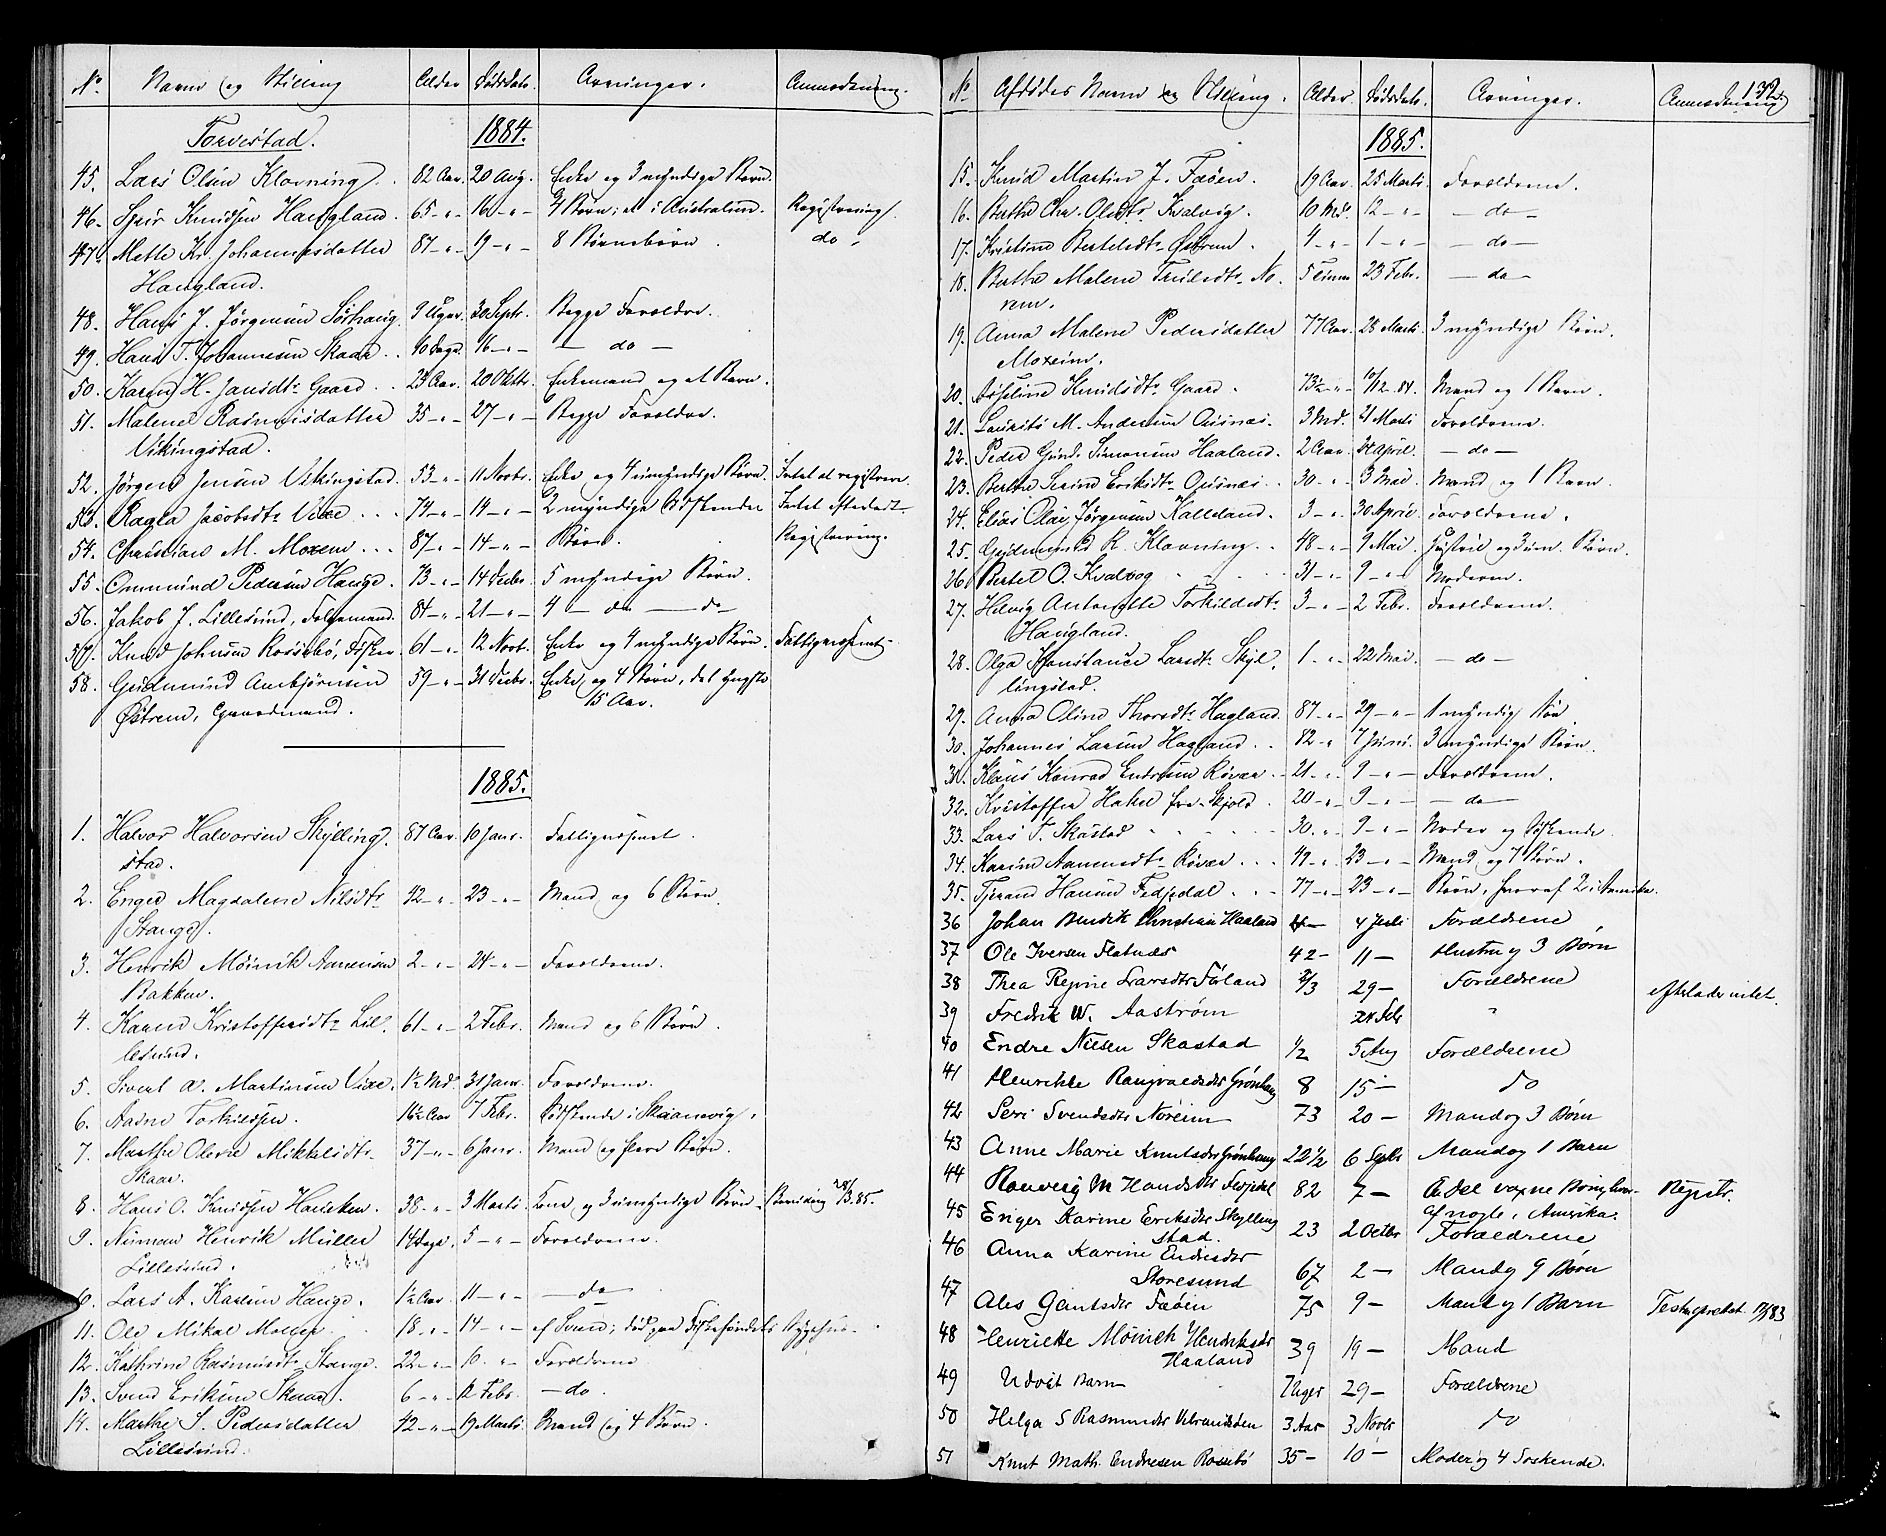 No. Navn og Stilling Alder Dødsdato. Arvinger. Anmærkning.
Torvestad. 1884.
45. Lars Olsen Klovning. 82 Aar. 20 Aug. Enke og 3 myndige Børn.
46. Knudsen Haugland. 65 -"- 16 -"- 4 Børn; et i Australien. Registrering
47. Mette Kr. Johannesdatter 87 -"- 19 -"- 8 Børnebørn. do.
Haugland.
48. Hans J. Jørgensen Sørhaug 9 Uger. 30 Septr. Begge Forældre.
49. Hans T. Johannesen Skaar. 10 Dage. 16 -"- — do —
50. Karen H. Jansdtr Gaard. 23 Aar. 20 Oktbr. Enkemand og et Barn.
51. Malene Rasmusdatter 35 -"- 27 -"- Begge Forældre.
Vikingstad.
52. Jørgen Jensen Vikingstad. 53 -"- 11 Novbr. Enke og 4 umyndige Børn. Intet at registrere.
53. Ragla Jacobsdtr Vixe. 74 -"- 14 -"- 2 myndige Sødskender Intet efterladt.
54. Christian M. Moxem. 87 -"- 14 -"- Børn. Registrering.
55. Ommund Pedersen Hauge. 73 -"- 14 Decbr. 5 myndige Børn.
56. Jakob J. Lillesund, Folgemand. 84 -"- 21 -"- 4 — do — do
57. Knud Johnsen Rossebø, Fisker 61 -"- 12 Novb. Enke og 4 myndige Børn. Fattigunderst.
58. Gudmund Aanbjørnsen 59 -"- 31 Decbr. Enke og 4 Børn, det yngste
Østrem, Gaardmand. 15 Aar.
1885.
1. Halvor Halvorsen Skylling- 87 Aar. 10 Janr. Fattigunderst.
stad.
2. Enger Magdalene Nilsdtr 42 -"- 23 -"- Mand og 6 Børn.
Stange.
3. Henrik Møinik Aanensen 2 -"- 24 -"- Forældrene.
Bakken.
4. Karen Kristoffersdtr Lil- 61 -"- 2 Febr. Mand og 6 Børn.
lesund.
5. Sivert A. Martinsen Vixe. 1½ Md. 31 Janr. Forældrene.
6. Aadne Torkildsen. 16½ Aar 7 Febr. Sødskende i Skaanevig.
7. Marthe Olevie Mikkelsdtr 37 -"- 6 Janr. Mand og flere Børn.
Skaar.
8. Hans O. Knudsen Hausken. 38 -"- 3 Marts. Kone og 3 umyndige Børn. 85.
9. Numan Henrik Müller 14 Dage. 5 -"- Forældrene.
Lillesund.
Lars A. Karlsen Hauge. 1½ Aar. 11 -"- — do —
11. Ole Mikal Moller 18 -"- 14 -"- af Sund; død paa Sygehus.
12. Kathrine Rasmusdtr Stange. 22 -"- 10 -"- Forældrene
13. Svend Eriksen Skaar. 6 -"- 12 Febr. — do.
14. Marthe S. Pedersdatter 42 -"- 19 Marts. Mand og 4 Børn.
Lillesund.
132.
No. Afdødes Navn og Stilling. Alder. Dødsdato. Arvinger. Anmærkning
1885.
15. Knud Martin J. Fæøen. 19 Aar. 25 Marts. Forældrene.
16. Berthe Chr. Olsdtr Kvalvåg. 10 Md. 12 -"- — do —
17. Kristine Berteldtr Østrem. 4 -"- 1 -"- — do —
18. Berthe Malene Trulsdtr No- 5 Timer 23 Febr. — do —
rem.
19. Anna Malene Pedersdatter 77 Aar. 28 Marts 3 myndige Børn.
Moxeim.
20. Joseline Knudsdtr Gaard. 73½ -"- 10/12 84. Mand og 1 Barn.
21. Laurits M. Andersen Osnæs. 3 Md. 21 Marts Forældrene.
22. Peder Gund. Simonsen Haaland. 2 Aar. 24 April. — do —
23. Berthe Serine Eriksdtr Osnæs. 30 -"- 3 Mai. Mand og 1 Barn.
24. Elias Olai Jørgensen Kalleland. 3 -"- 30 April. Forældrene.
25. Gudmund K. Klovning. 48 -"- 9 Mai. Hustru og 3 um. Børn.
26. Bertel O. Kvalvåg 31 -"- 9 -"- Moderen.
27. Helvig Antonette Torkildsdtr 3 -"- 2 Febr. Forældrene.
Haugland.
28. Olga Konstance Larsdtr Skyl- 1 -"- 22 Mai. — do —
lingstad.
29. Anna Oline Thorsdtr Hagland. 87 -"- 29 -"- 1 myndig Søn
30. Johannes Larsen Hagland. 82 -"- 7 Juni. 3 myndige Børn.
31. Klaus Konrad Endresen Røvær. 21 -"- 9 -"- Forældrene.
32. Kristoffer Hakel fra Skjold. 20 -"- 9 -"- — do —
33. Lars T. Skåstad 30 -"- 9 -"- Moder og Søskende.
34. Karine Aanensdtr Røvær. 49 -"- 23 -"- Mand og 7 Børn.
35. Tjerand Hansen Fedjedal. 77 -"- 23 -"- Børn, hvoraf 2 i Amerika.
36 Johan Bendik Christian Haaland 4 Juli Forældrene
37 Ole Iversen Flatnæs 42 - 11 — Hustru og 3 Børn
38 Thea Regine Larsdtr Førland 2/3 29 — Forældrene
39 Fredrik W. Aastrøm 24 Febr " Efterlader intet.
40 Endre Nilsen Skastad ½ 5 Aug Forældrene
41 Henrikke Rangvaldsdtr Grønhaug 8 15 — do
42 Seri Svendsdtr Norèim 73 20 — Mand og 3 Børn
43 Anne Marie Knutsdtr Grønhaug 22½ 6 Septbr Mand og 1 Barn
44 Ranveig M Hansdtr Fedjedal 82 7 — En Del voxne Børn, hvor- Registr.
af nogle i Amerika.
45 Enger Karine Eriksdtr Skylling 23 2 Octbr Forældrene
stad.
46 Anna Karine Endresdtr 67 2 — Mand og 9 Børn
Storesund
47 Ales Gautsdtr Fæøen 75 9 — Mand og 1 Barn
48 Henriette Møinich Hendriksdtr 39 19 — Mand
Haaland
49 Udøbt Barn 7 Uger 29 — Forældrene
50 Helga S Rasmusdtr Vibrandsøen 3 Aar 3 Novbr do
51 Knut Math. Endresen Rossebø 35 — 10 — Moder og 4 Søskende.